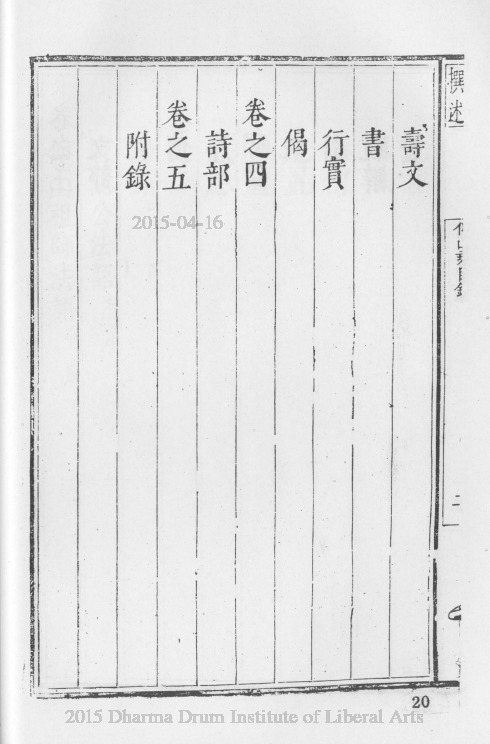 撰述
二
壽文
書
行實
偈
卷之四
詩部
卷之五
附錄
2015-04-16
20
2015 Dharma Drum Institute of Liberal Arts